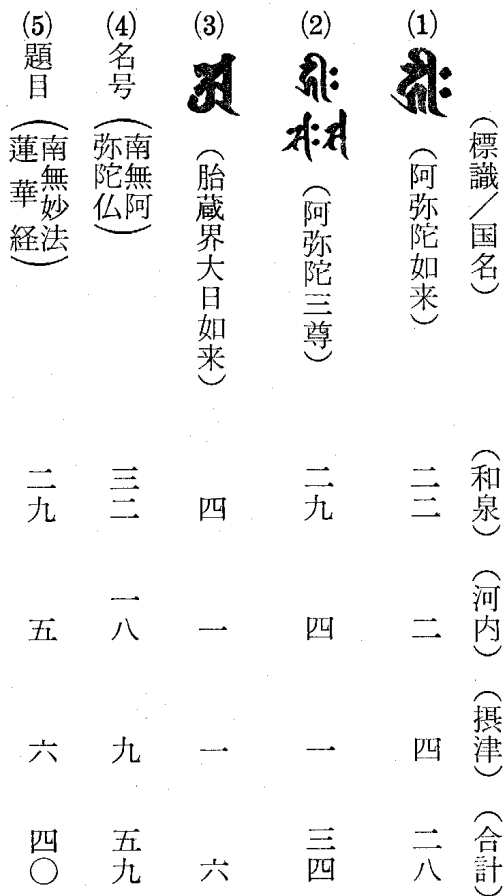 （標識／国名）　（和泉）　（河内）　（摂津）　（合計）
(1)　（阿弥陀如来）　二二　二　四　二八
(2)　（阿弥陀三尊）　二九　四　一　三四
(3)　（胎蔵界大日如来）　四　一　一　六
(4)　名号（南無阿弥陀仏）　三二　一八　九　五九
(5)　題目（南無妙法蓮華経）　二九　五　六　四〇